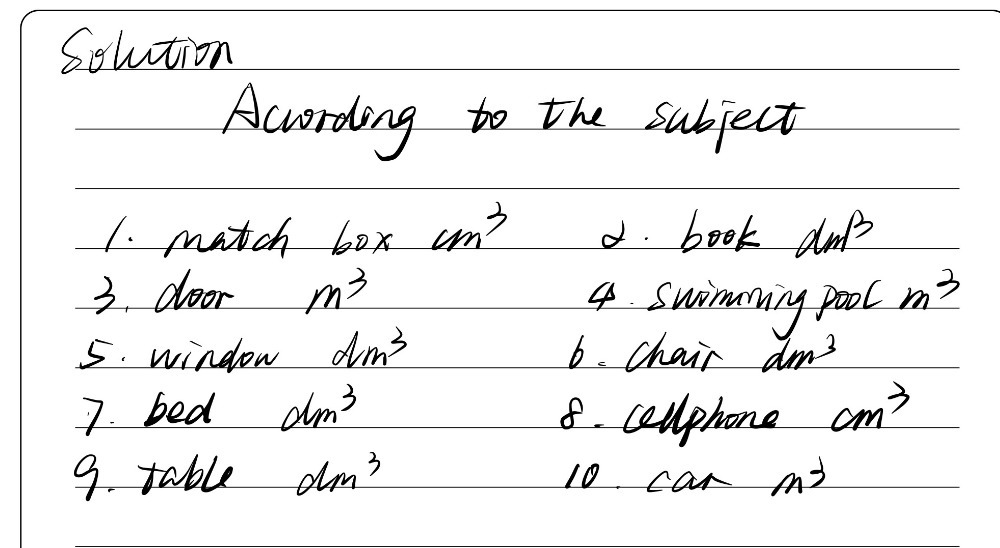 Solution
Acording to the subject
1. match box cm³ 2. book dm³
3. door m³ 4. swimming pool m³
5. window dm³ 6. chair dm³
7. bed dm³ 8. cellphone cm³
9. table dm³ 10. car m³